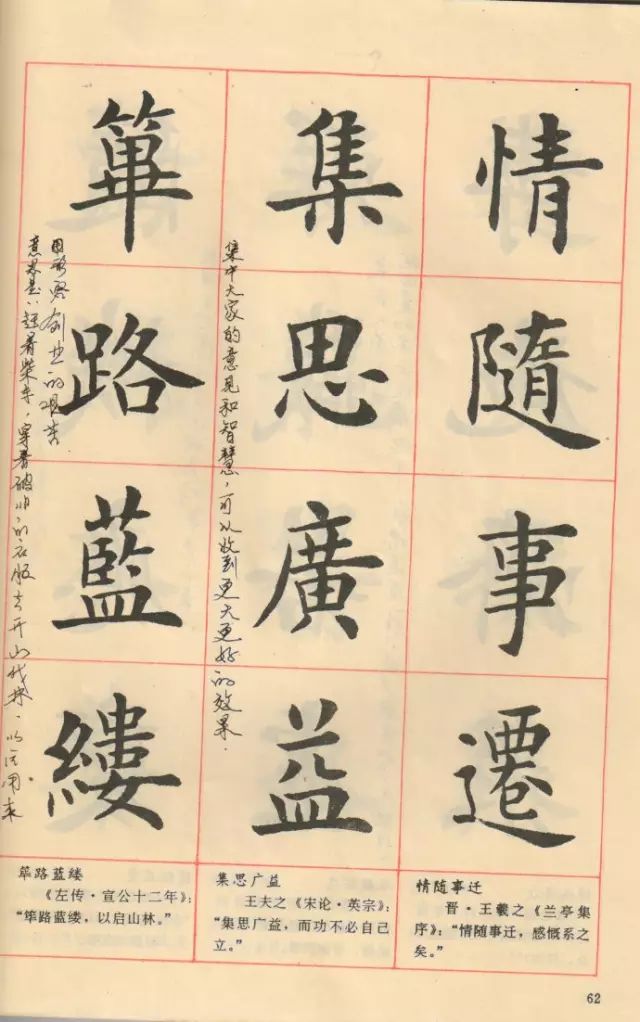 情隨事遷
集思廣益
篳路藍縷
集中大家的意见和智慧，可以收到更大更好的效果．
意思是：赶着柴车，穿着破旧的衣服去开山伐林．以后用来
用形容创业的艰苦
情随事迁
晋·王羲之《兰亭集
序》：“情随事迁，感慨系之
矣。”
集思广益
王夫之《宋论·英宗》：
“集思广益，而功不必自己
立。”
筚路蓝缕
《左传·宣公十二年》：
“筚路蓝缕，以启山林。”
62